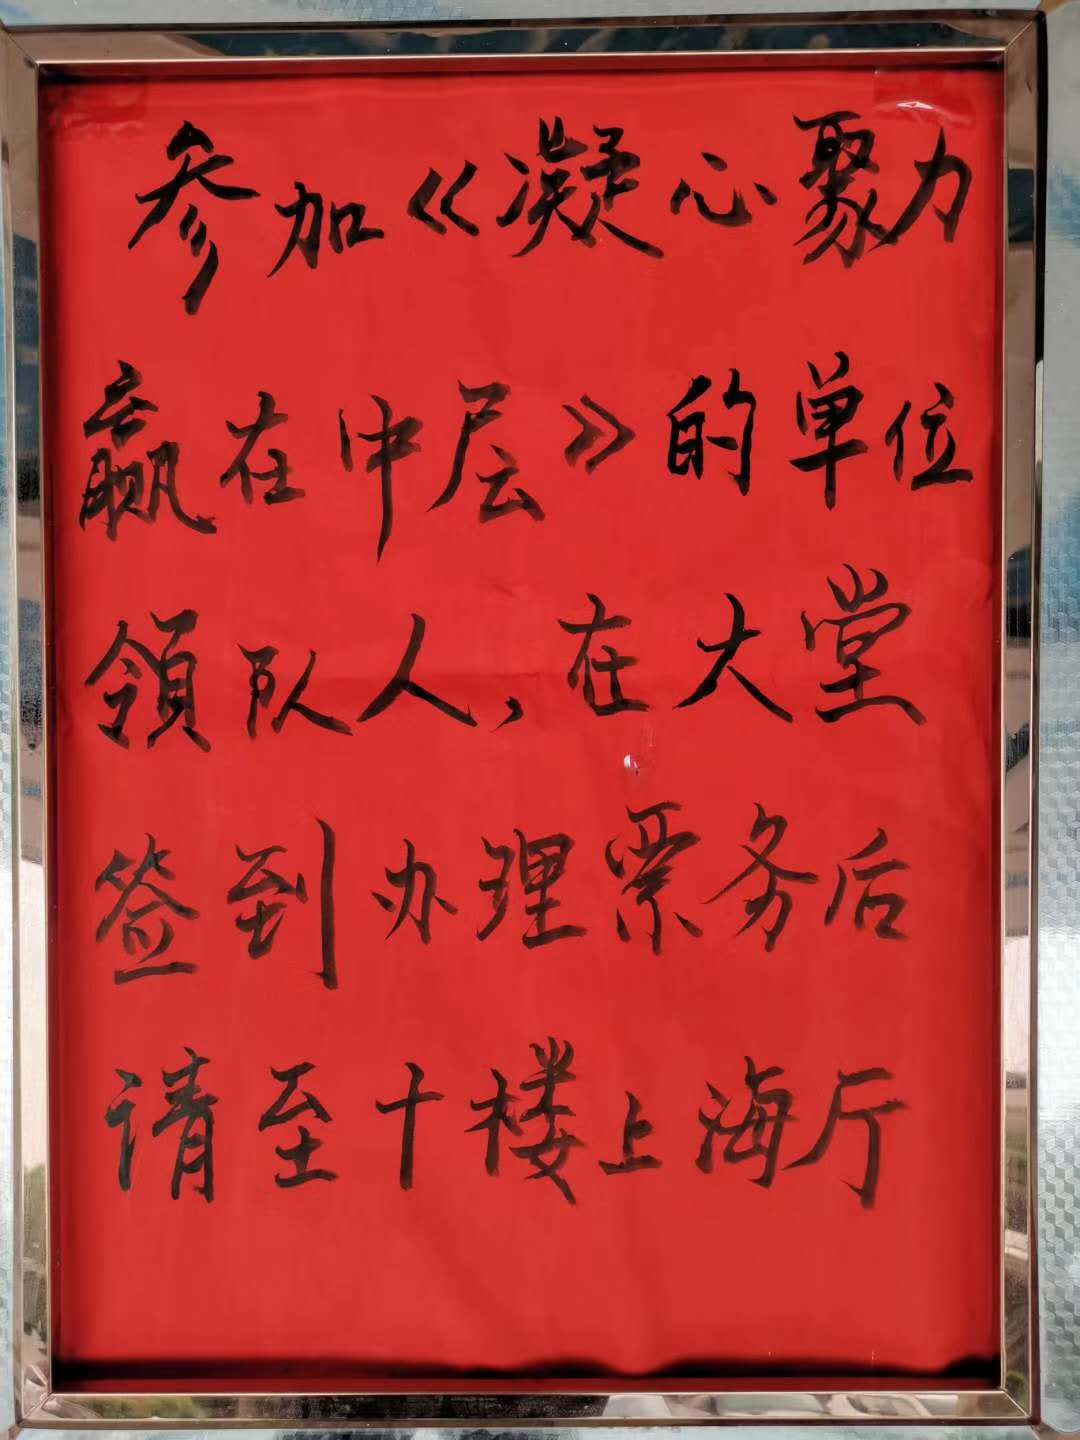 参加《凝心聚力
赢在中层》的单位
領队人,在大堂
签到办理票务后
请至十楼上海厅